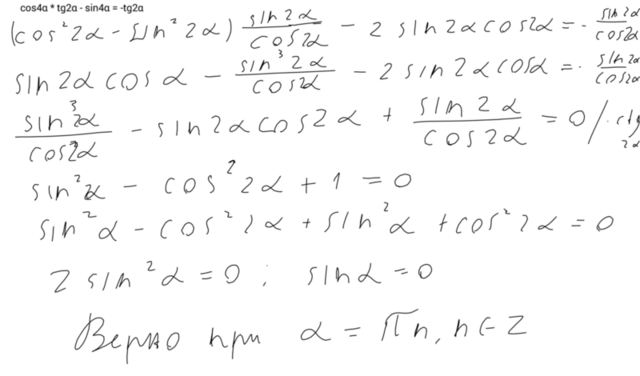 cos4a * tg2a - sin4a = -tg2a
(cos² 2α - sin² 2α) sin 2α / cos 2α - 2 sin 2α cos 2α = - sin 2α / cos 2α
sin 2α cos α - sin³ 2α / cos 2α - 2 sin 2α cos α = - sin 2α / cos α
sin³ 2α / cos 2α - sin 2α cos 2α + sin 2α / cos 2α = 0 / · ctg 2α
sin² α - cos² 2α + 1 = 0
sin² α - cos² 2α + sin² α + cos² 2α = 0
2 sin² α = 0 ; sin α = 0
Верно при α = πn, n ∈ Z